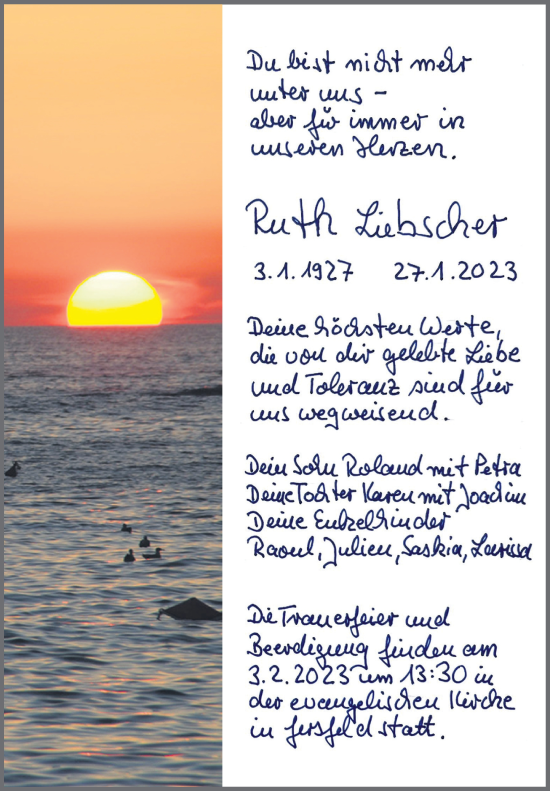 Du bist nicht mehr
unter uns –
aber für immer in
unseren Herzen.
Ruth Liebscher
3.1.1927 27.1.2023
Deine höchsten Werte,
die von dir gelebte Liebe
und Toleranz sind für
uns wegweisend.
Dein Sohn Roland mit Petra
Deine Tochter Karen mit Joachim
Deine Enkelkinder
Raoul, Julien, Saskia, Larissa
Die Trauerfeier und
Beerdigung finden am
3.2.2023 um 13:30 in
der evangelischen Kirche
in Jersfeld statt.